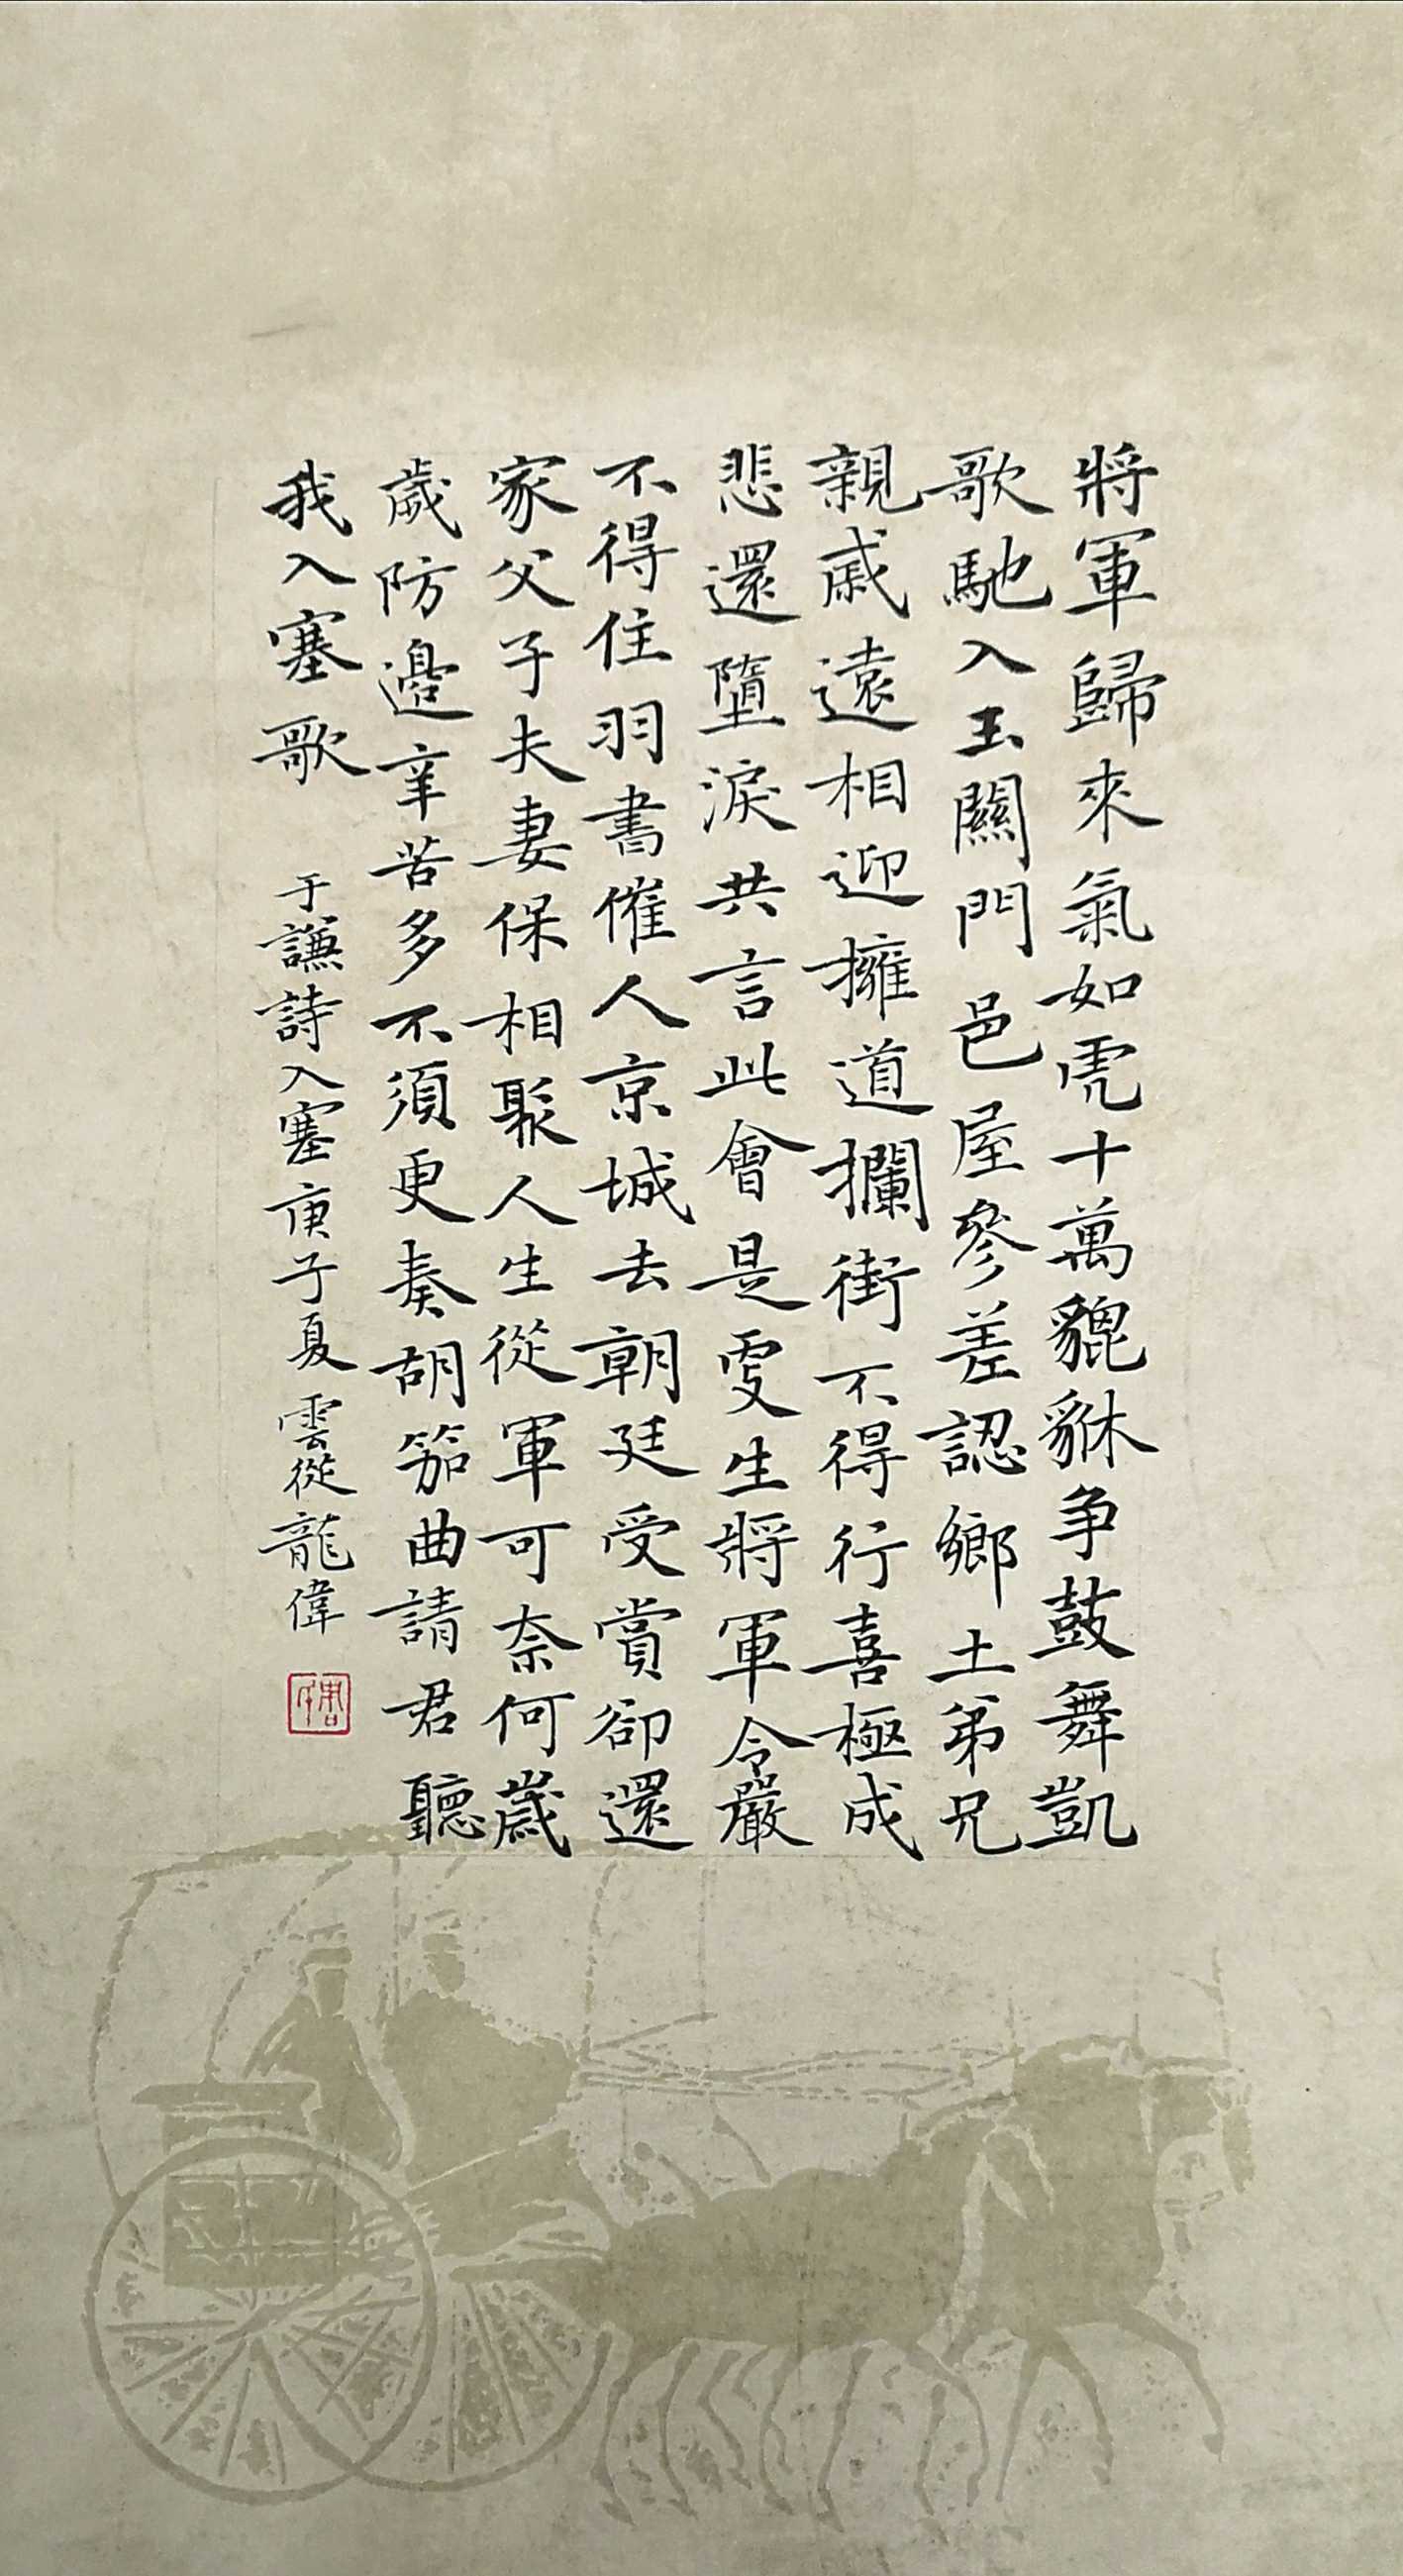 將軍歸來氣如虎十萬貔貅争鼓舞凱
歌馳入玉關門邑屋參差認鄉土弟兄
親戚遠相迎擁道攔街不得行喜極成
悲還墮淚共言此會是更生將軍令嚴
不得住羽書催人京城去朝廷受賞卻還
家父子夫妻保相聚人生從軍可奈何歲
歲防邊辛苦多不須更奏胡笳曲請君聽
我入塞歌
于謙詩入塞庚子夏雲從龍偉